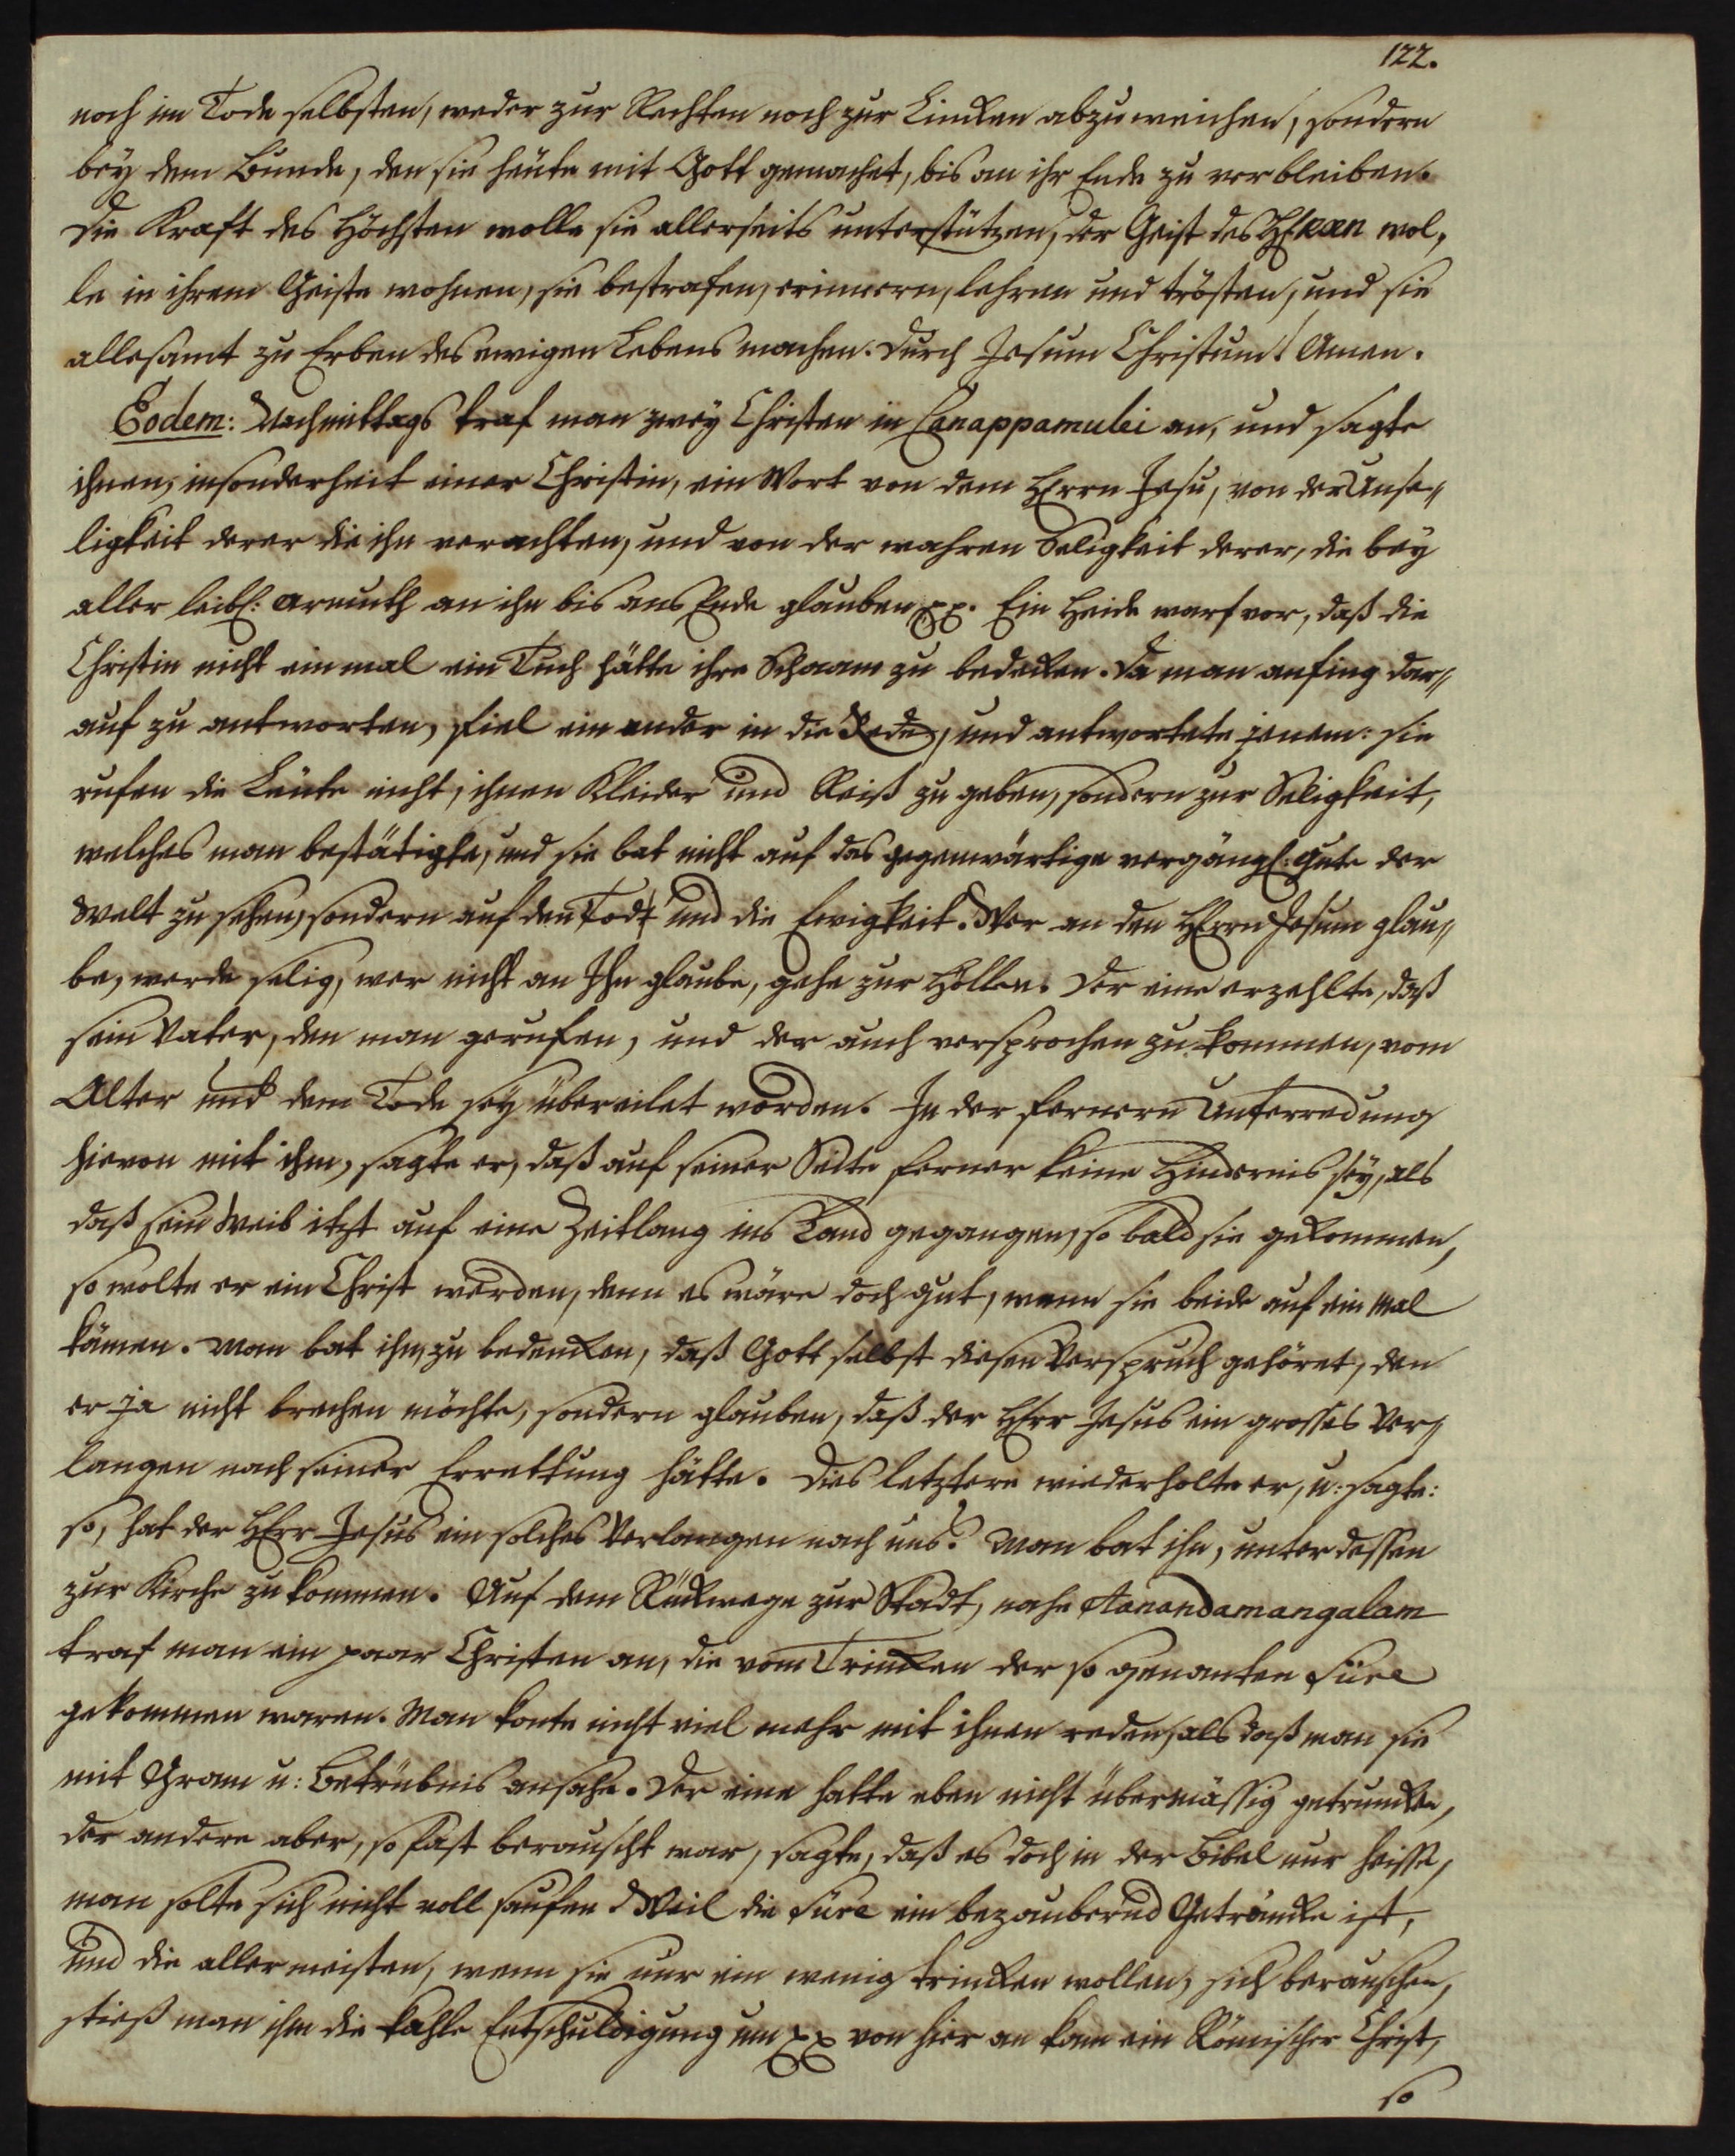 122.
noch im Tode selbsten, weder zur Rechten noch zur Lincken abzuweichen, sondern
bey dem Bunde, den sie heute mit Gott gemachet, bis an ihr Ende zu verbleiben.
Die Kraft des Höchsten wolle sie allerseits unterstützen, der Geist des HErrn wol„
le in ihrem Geiste wohnen, sie bestrafen, erinnern, lehren und trösten, und sie
allesamt zu Erben des ewigen Lebens machen. durch Jesum Christum! Amen.
Eodem: Nachmittags traf man zwey Christen in Canappamulei an, und sagte
ihnen, insonderheit einer Christin, ein Wort von dem HErrn Jesu, von der Unse„
ligkeit derer die ihn verachten, und von der wahren Seligkeit derer, die bey
aller leibl: Armuth an ihn bis ans Ende glauben pp. Ein Heide warf vor, daß die
Christin nicht einmal ein Tuch hätte ihre Schaam zu bedecken. Da man anfing dar„
auf zu antworten, fiel ein ander in die Rede, und antwortete jenem: sie
rufen die Leute nicht, ihnen Kleider und Reiß zu geben, sondern zur Seligkeit,
welches man bestätigte, und sie bat nicht auf das gegenwärtige vergängl: Gute der
Welt zu sehen, sondern auf den Todt und die Ewigkeit. Wer an den HErrn Jesum glau„
be, werde selig, wer nicht an Ihn glaube, gehe zur Höllen. Der eine erzehlte, daß
sein Vater, den man gerufen, und der auch versprochen zu kommen, vom
Alter und dem Tode sey übereilet worden. In der fernern Unterredung
hievon mit ihm, sagte er, daß auf seiner Seite ferner keine Hindernis sey, als
daß sein Weib itzt auf eine Zeitlang ins Land gegangen, so bald sie gekommen,
so wolte er ein Christ werden, denn es wäre doch gut, wenn sie beide auf ein mal
kämen. Man bat ihn, zu bedencken, daß Gott selbst diesen Verspruch gehöret, den
er ja nicht brechen möchte, sondern glauben, daß der HErr Jesus ein grosses Ver„
langen nach seiner Errettung hätte. Dies letztere wiederholte er, u: sagte:
so, hat der HErr Jesus ein solches Verlangen nach uns? Man bat ihn, unterdessen
zur Kirche zu kommen. Auf dem Rückwege zur Stadt, nahe Aanandamangalam
traf man ein paar Christen an, die vom Trincken der so genanten Süre
gekommen waren. Man konte nicht viel mehr mit ihnen reden, als daß man sie
mit Gram u: Betrübnis ansahe. Der eine hatte eben nicht übermässig getruncken,
der andere aber, so fast berauscht war, sagte, daß es doch in der Bibel nur heisse,
man solte sich nicht voll saufen. Weil die Süre ein bezaubernd Geträncke ist,
und die allermeisten, wenn sie nur ein wenig trincken wollen, sich berauschen,
stieß man ihm die kahle Entschuldigung um pp von hier an kam ein Römischer Christ,
so